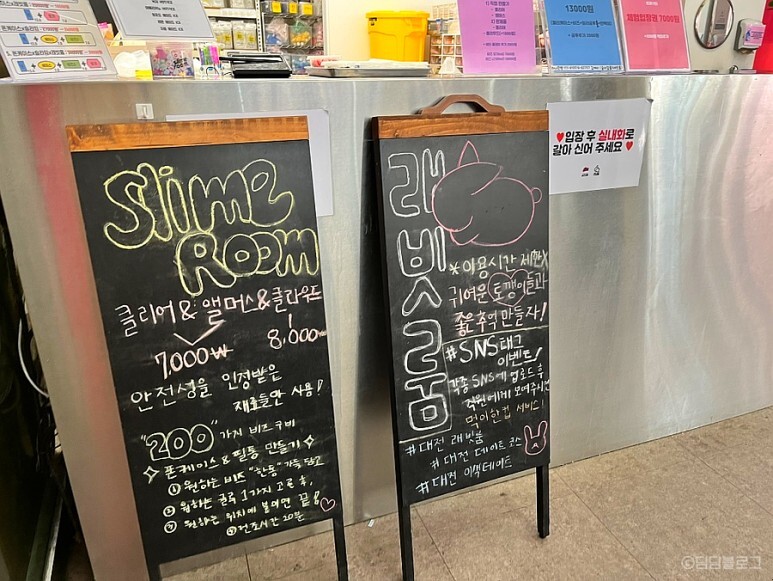 Slime
ROOM
클리어 & 앨머스 & 클라우드
7,000₩
8,000₩
안전성을 인정받은
재료들만 사용!
"200" 가지 비즈 구비
폰케이스 & 필통 만들기
① 원하는 비즈 "한통" 가득 담고
② 원하는 글루 1가지 고른 후,
③ 원하는 위치에 붙이면 끝!
건조시간 20분
래빗룸
*이용시간 제한X
귀여운 토깽이들과
좋은 추억 만들자!
#SNS 태그
이벤트!
각종 SNS에 업로드 후
직원에게 보여주시면
먹이 한컵 서비스!
#대전 래빗룸
#대전 데이트 코스
#대전 이색데이트
♥입장 후 실내화로
갈아 신어 주세요♥
13000원
체험입장권 7000원
©팀덤블로그